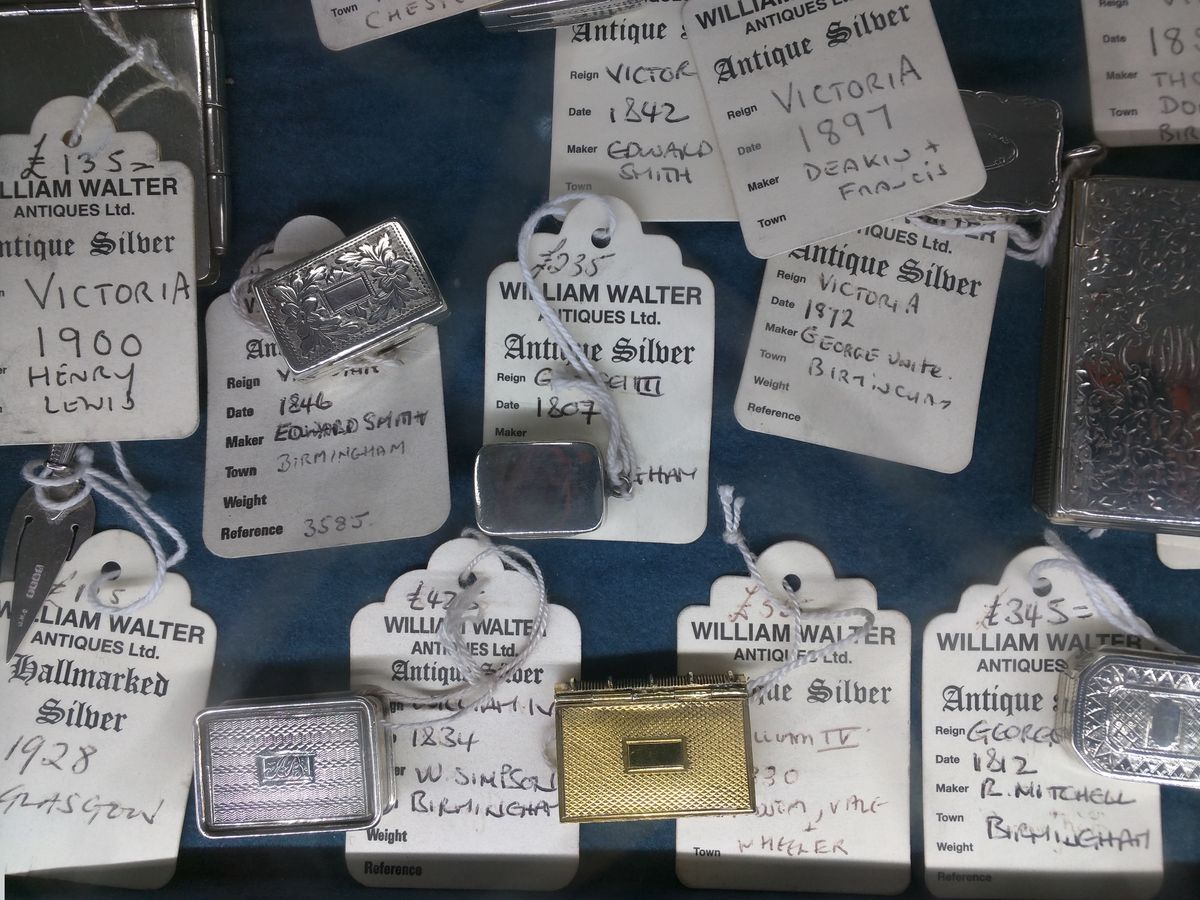 Town
CHESTE
Antique Silver
Reign VICTOR
Date 1842
Maker EDWARD
SMITH
Town
WILLIAM WALTER
ANTIQUES Ltd.
Antique Silver
Reign VICTORIA
Date 1897
Maker DEAKIN +
FRANCIS
Town
Reign
Date 18
Maker THO
Town DO
BIR
£135=
LLIAM WALTER
ANTIQUES Ltd.
ntique Silver
VICTORIA
1900
HENRY
LEWIS
An
Reign
Date 1846
Maker EDWARD SMITH
Town BIRMINGHAM
Weight
Reference 3585
£235
WILLIAM WALTER
ANTIQUES Ltd.
Antique Silver
Reign G III
Date 1807
Maker
GHAM
TIQUES Ltd.
Antique Silver
Reign VICTORIA
Date 1872
Maker GEORGE UNITE.
Town BIRMINGHAM
Weight
Reference
LLIAM WALTER
ANTIQUES Ltd.
Hallmarked
Silver
1928
GLASGOW
WILLIAM WALTER
ANTIQUES Ltd.
Antique Silver
WILLIAM IV
1834
W. SIMPSON
BIRMINGHA
Weight
Reference
WILLIAM WALTER
ANTIQUES Ltd.
ue Silver
lliam IV
30
, VALE
+
Town WHEELER
£345=
WILLIAM WALTER
ANTIQUES
Antique
Reign GEORGE
Date 1812
Maker R. MITCHELL
Town BIRMINGHAM
Weight
Reference